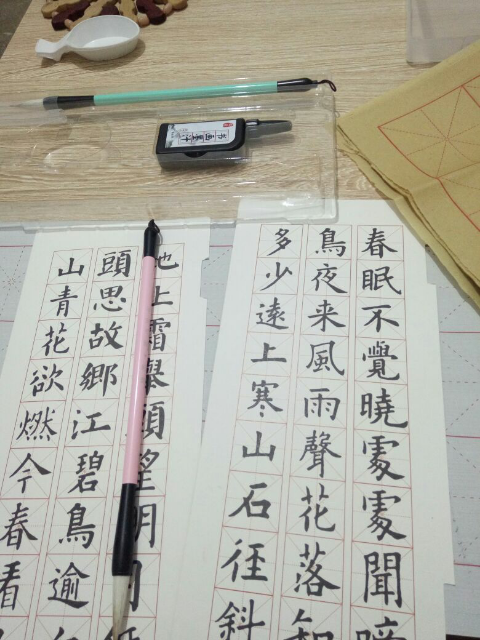 春眠不覺曉處處聞啼
鳥夜来風雨聲花落知
多少遠上寒山石径斜
地上霜舉頭望明月低
頭思故鄉江碧鳥逾白
山青花欲燃今春看
书画墨汁